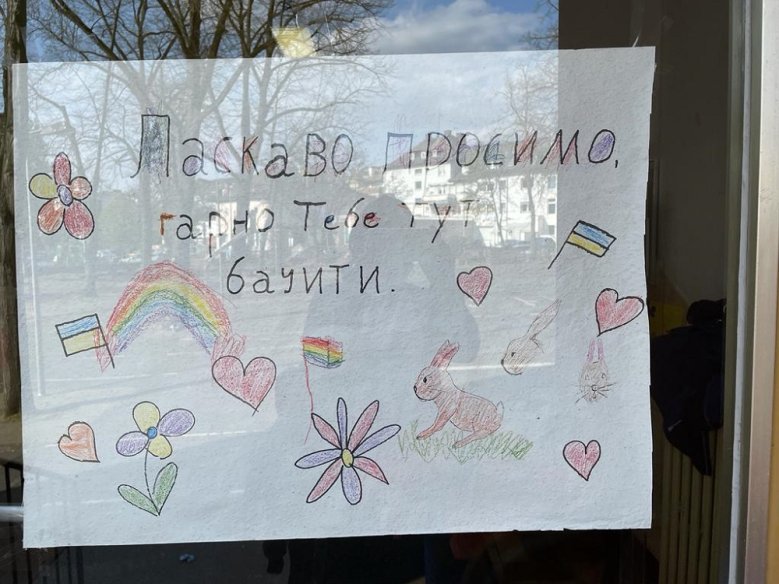 Ласкаво просимо,
гарно Тебе тут
бачити.